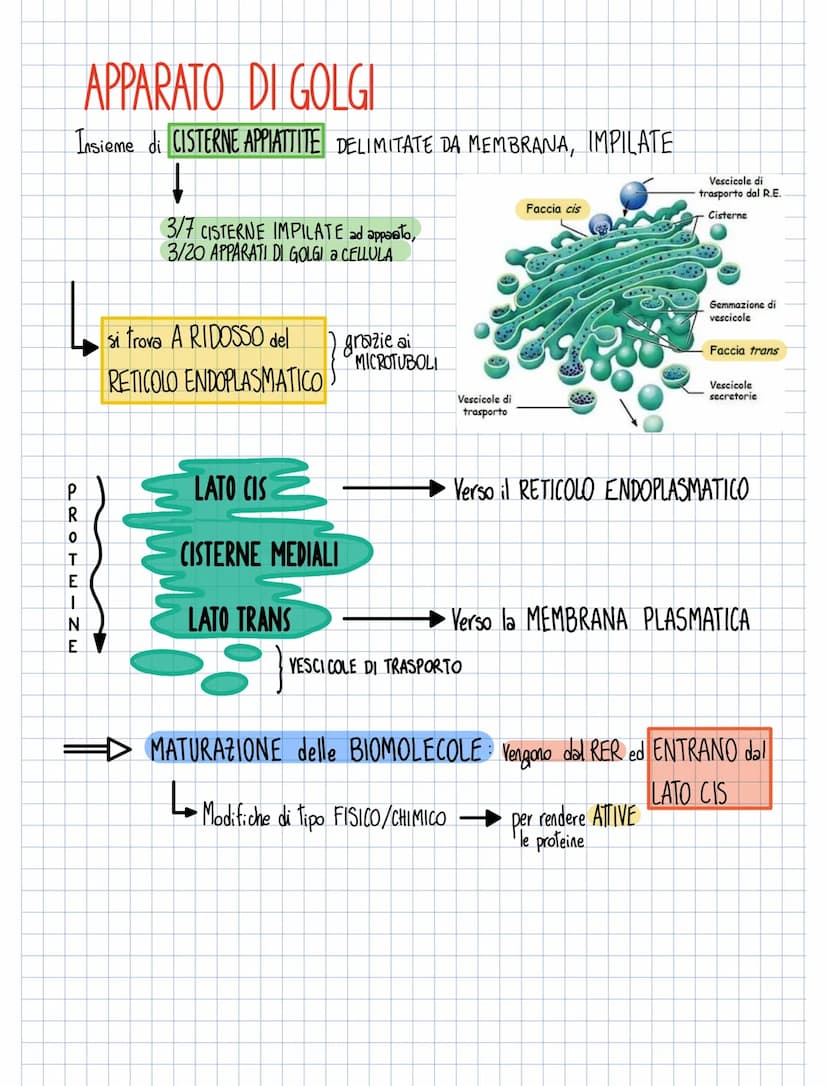 APPARATO DI GOLGI
Insieme di CISTERNE APPIATTITE DELIMITATE DA MEMBRANA, IMPILATE
3/7 CISTERNE IMPILATE ad apparato,
3/20 APPARATI DI GOLGI a CELLULA
si trova A RIDOSSO del
RETICOLO ENDOPLASMATICO
grazie ai
MICROTUBOLI
Vescicole di
trasporto dal R.E.
Faccia cis
Cisterne
Gemmazione di
vescicole
Faccia trans
Vescicole
secretorie
Vescicole di
trasporto
PROTEINE
LATO CIS
Verso il RETICOLO ENDOPLASMATICO
CISTERNE MEDIALI
LATO TRANS
Verso la MEMBRANA PLASMATICA
VESCICOLE DI TRASPORTO
MATURAZIONE delle BIOMOLECOLE: Vengono dal RER ed ENTRANO dal
LATO CIS
Modifiche di tipo FISICO/CHIMICO
per rendere ATTIVE
le proteine